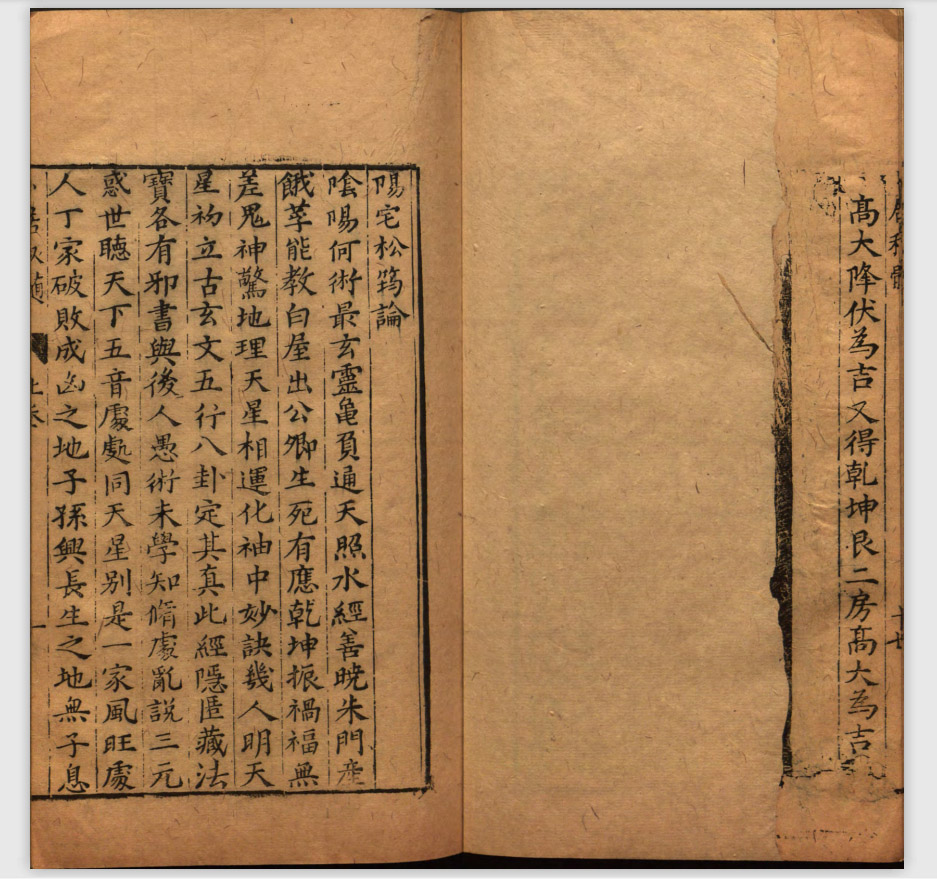 高大降伏為吉又得乾坤艮二房髙大為吉
陽宅松筠論
隂陽何術最玄靈亀頁通天照水經善暁朱門産
餓莩能教白屋出公卿生死有應乾坤振禍福無
差鬼神驚地理天星相運化袖中妙訣㡬人明天
星礿立古玄文五行八卦定其真此經隠匿藏法
寶各有邪書與後人愚術未學知脩䖏亂説三元
惑世聴天下五音䖏䖏同天星别是一家風旺䖏
人丁家破敗成凶之地子孫興長生之地無子息
上卷
一